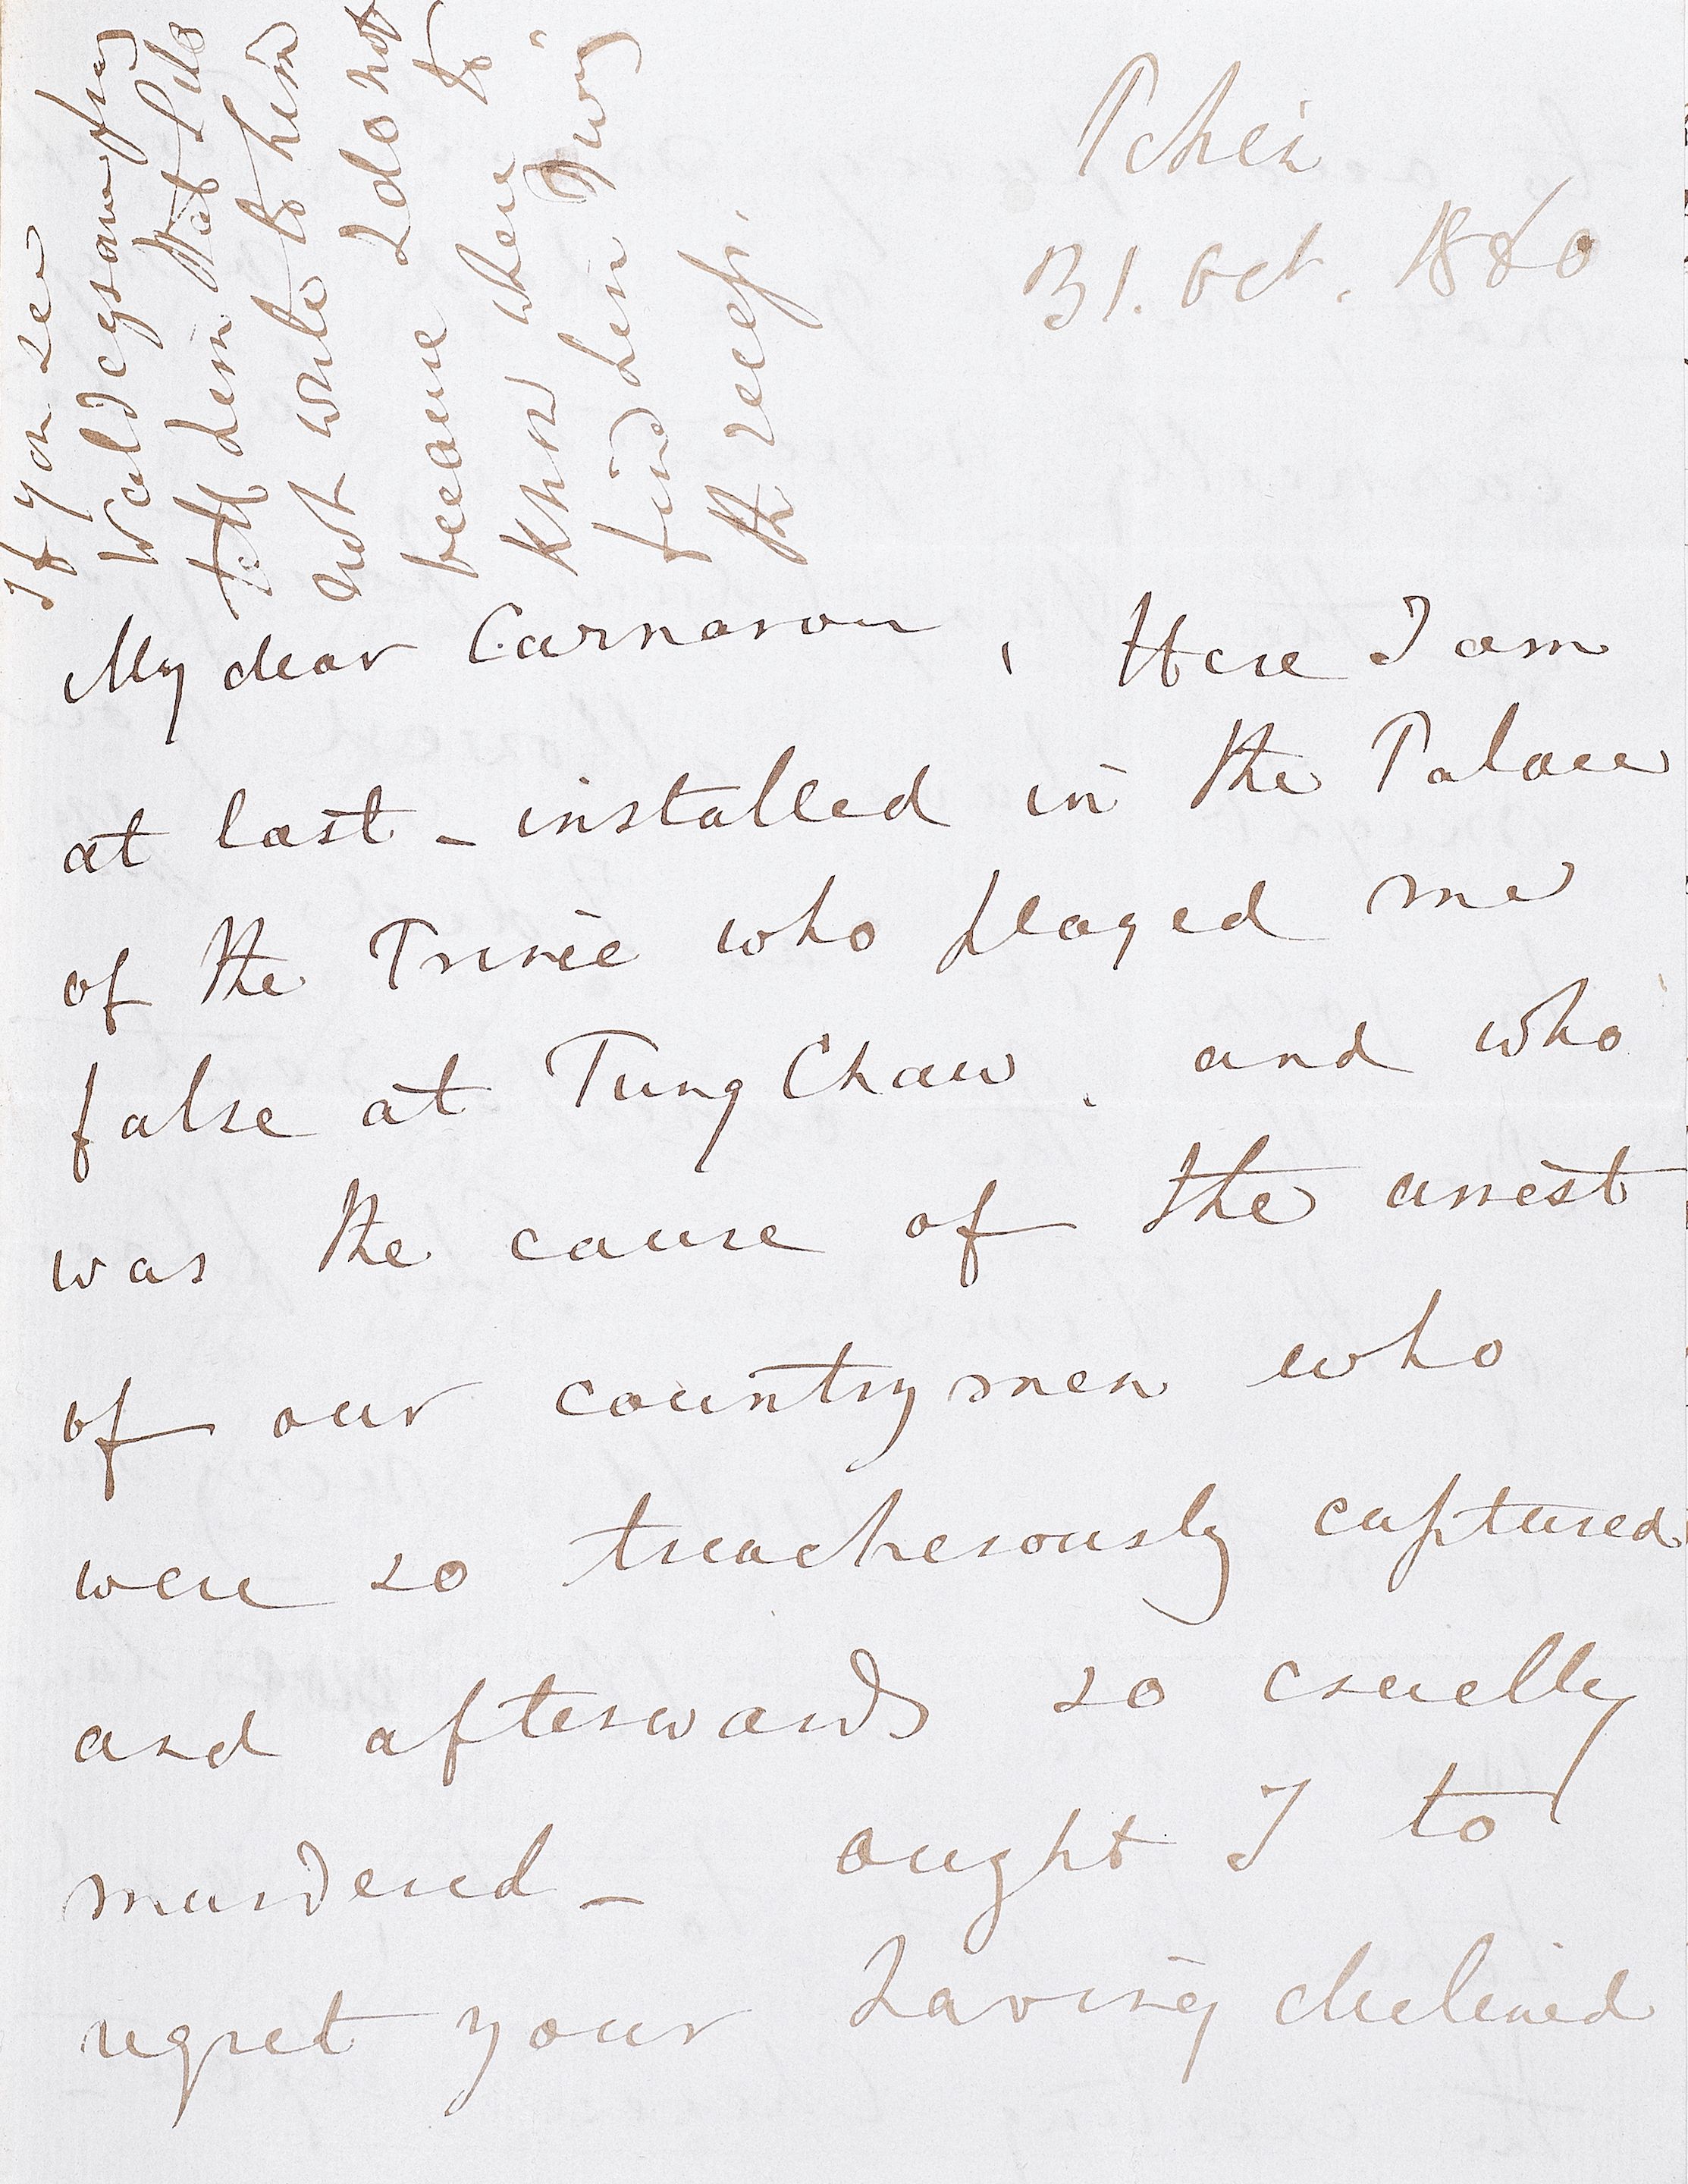 Pekin
31. Oct. 1860
If you see
pray
tell him that I do
not write to him
because I do not
know where to
find him
My dear Carnarvon, Here I am
at last - installed in the Palace
of the Prince who played me
false at Tung Chaw. and who
was the cause of the arrest
of our countrymen who
were so treacherously captured
and afterwards so cruelly
murdered - ought I to
regret your having declined